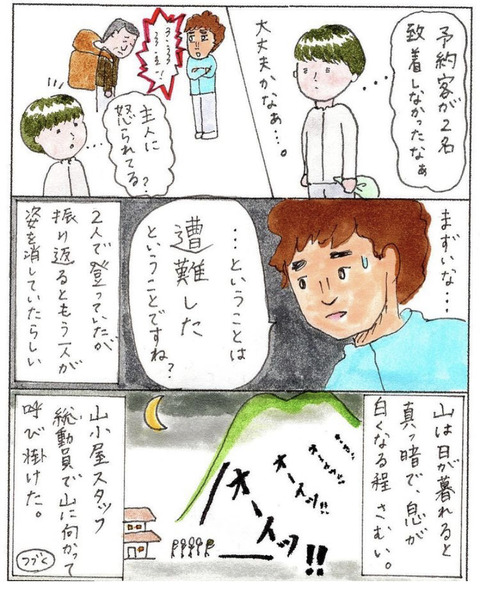 予約客が2名
致着しなかったなぁ
大丈夫かなぁ…。
主人に
怒られてる?
まずいな…
…ということは
遭難した
ということですね?
2人で登っていたが
振り返るともう一人が
姿を消していたらしい
山は日が暮れると
真っ暗で、息が
白くなる程さむい。
オーイッ!!
オーイッ!!
山小屋スタッフ
総動員で山に向かって
呼び掛けた。
つづく